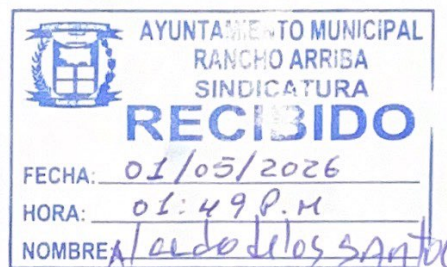 AYUNTAMIENTO MUNICIPAL
RANCHO ARRIBA
SINDICATURA
RECIBIDO
FECHA: 01/05/2026
HORA: 01:49 P.M
NOMBRE: de los Santos